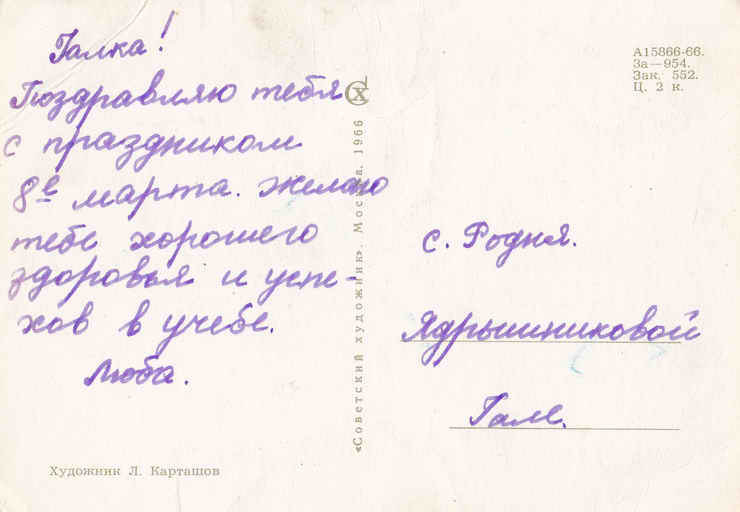 Галка!
Поздравляю тебя
с праздником
8е марта. Желаю
тебе хорошего
здоровья и успе-
хов в учебе.
Люба.
Художник Л. Карташов
«Советский художник». Москва. 1966
СХ
А15866-66.
За—954.
Зак. 552.
Ц. 2 к.
с. Родня.
Ядрышниковой
Гале.